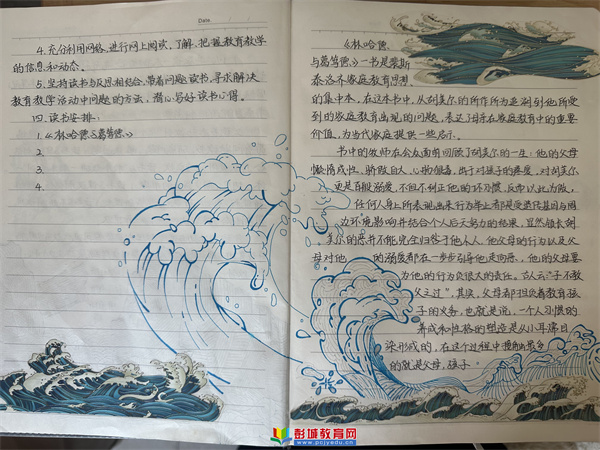 Date
4. 充分利用网络，进行网上阅读，了解、把握教育教学
的信息和动态。
5. 坚持读书与反思相结合，带着问题读书，寻求解决
教育教学活动中问题的方法，潜心写好读书心得。
四. 读书安排：
1.《林哈德与葛笃德》
2.
3.
4.
《林哈德
与葛笃德》一书是裴斯
泰洛齐家庭教育思想
的集中本，在这本书中，从胡美尔的所作所为追溯到他所受
到的家庭教育出现的问题，表达了母亲在家庭教育中的重要
价值，为当代家庭提供一些启示。
书中的牧师在公众面前回顾了胡美尔的一生：他的父母
懒惰成性、骄傲自人、心胸偏窄，出于对孩子的溺爱，对胡美尔
更是百般溺爱，不但不纠正他的坏习惯，反而以此为傲，
任何人身上所表现出来行为举止都是受遗传基因与周
边环境影响并结合个人后天努力的结果，显然镇长胡
美尔的恶并不能完全归咎于他本人，他父母的行为以及父
母对他 的溺爱都在一步步引导他走向恶，他的父母要
为他的行为负很大的责任。古人云“子不教
父之过”，其实，父母都担负着教育孩
子的义务，也就是说，一个人习惯的
养成和性格的塑造是从小耳濡目
染形成的，在这个过程中接触最多
的就是父母，孩子
彭城教育网
www.pcjyedu.cn